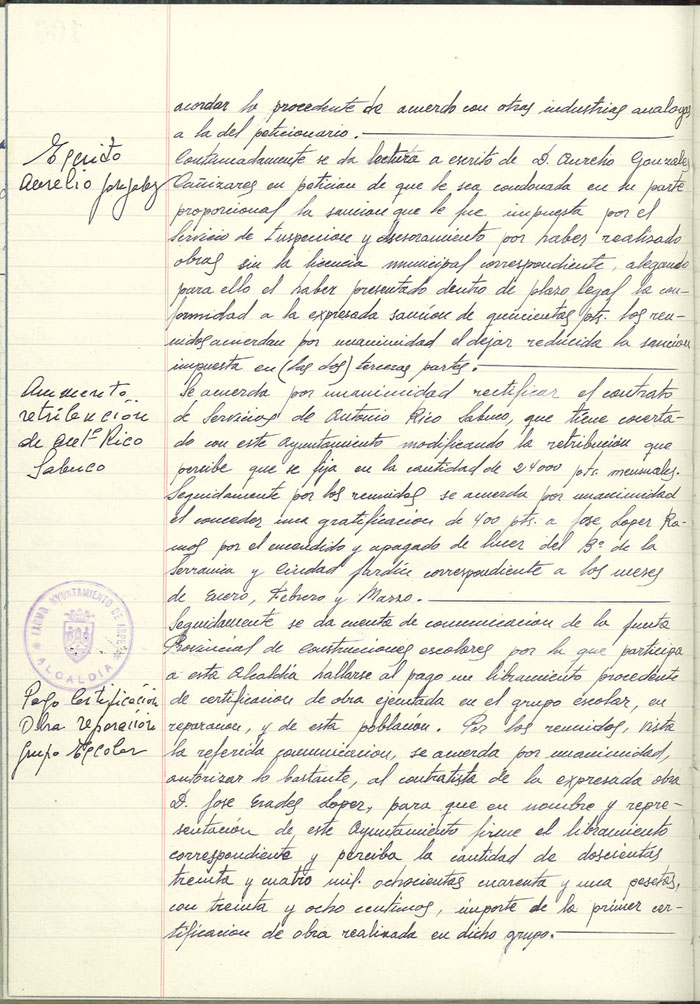 acordar lo procedente de acuerdo con otras industrias analogas
a la del peticionario.
Escrito
Aurelio Gonzalez
Continuadamente se da lectura a escrito de D. Aurelio Gonzalez
Cañizares en peticion de que le sea condonada en su parte
proporcional la sancion que le fue impuesta por el
Servicio de Inspeccion y asesoramiento por haber realizado
obras sin la licencia municipal correspondiente, alegando
para ello el haber presentado dentro de plazo legal la con-
formidad a la expresada sancion de quinientas pts. los reu-
nidos acuerdan por unanimidad el dejar reducida la sanción
impuesta en (las dos) terceras partes.
Aumento
retribución
de Antº Rico
Sabuco
Se acuerda por unanimidad rectificar el contrato
de Servicios de Antonio Rico Sabuco, que tiene concerta-
do con este Ayuntamiento modificando la retribución que
percibe que se fija en la cantidad de 24000 pts. mensuales.
Seguidamente por los reunidos se acuerda por unanimidad
el conceder una gratificacion de 400 pts. a Jose Lopez Ra-
mos por el encendido y apagado de luces del Bº de la
Serrania y Ciudad Jardin correspondiente a los meses
de Enero, Febrero y Marzo.
EXCMO. AYUNTAMIENTO DE ASPE
ALCALDIA
Seguidamente se da cuenta de comunicacion de la Junta
Provincial de Construcciones escolares por la que participa
a esta Alcaldía hallarse al pago un libramiento procedente
Pago Certificación
Obra reparación
Grupo Escolar
de certificacion de obra ejecutada en el grupo escolar, en
reparacion, y de esta población. Por los reunidos, vista
la referida comunicacion, se acuerda por unanimidad,
autorizar lo bastante, al contratista de la expresada obra
D. Jose Erades Lopez, para que en nombre y repre-
sentación de este Ayuntamiento firme el libramiento
correspondiente y perciba la cantidad de doscientas
treinta y cuatro mil ochocientas cuarenta y una pesetas,
con treinta y ocho centimos, importe de la primer cer-
tificacion de obra realizada en dicho grupo.